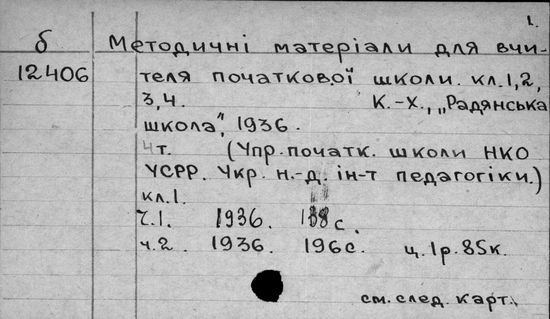 1.
б Методичні матеріали для вчи-
12406 теля початкової школи. кл.1,2,
3,4. К.-Х., „Радянська
школа", 1936.
4т. (Упр. початк. школи НКО
УСРР. Укр. н.-д. ін-т педагогіки.)
кл.1.
ч.1. 1936. с.
ч.2. 1936. 196с. ц.1р.85к.
см. след. карт.